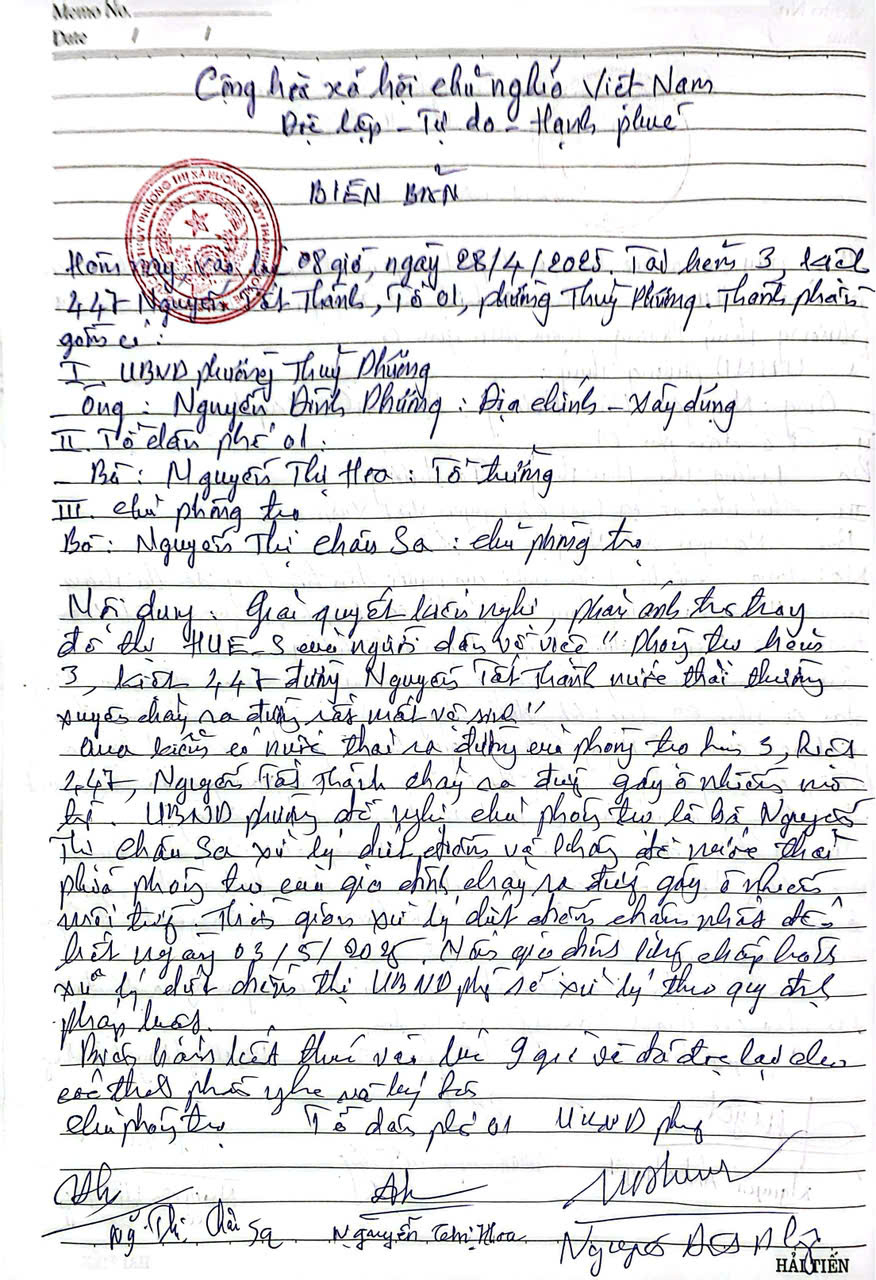 Memo No.
Date / /
Cộng hòa xã hội chủ nghĩa Việt Nam
Độc lập - Tự do - Hạnh phúc
BIÊN BẢN
Hôm nay, vào lúc 08 giờ, ngày 28/4/2025. Tại hẻm 3, kiệt
447 Nguyễn Tất Thành, Tổ 01, phường Thuỷ Phương. Thành phần
gồm có:
I. UBND phường Thuỷ Phương
Ông: Nguyễn Đình Phương: Địa chính - Xây dựng
II. Tổ dân phố 01:
- Bà: Nguyễn Thị Hoa: Tổ trưởng
III. Chủ phòng trọ
Bà: Nguyễn Thị Châu Sa: chủ phòng trọ
Nội dung: Giải quyết kiến nghị, phản ánh trên trang
đô thị HUE-S của người dân về việc "Phòng trọ hẻm
3, kiệt 447 đường Nguyễn Tất Thành nước thải thường
xuyên chảy ra đường rất mất vệ sinh"
Qua kiểm có nước thải ra đường của phòng trọ hẻm 3, kiệt
447, Nguyễn Tất Thành chảy ra đường gây ô nhiễm môi
trường. UBND phường đề nghị chủ phòng trọ là bà Nguyễn
Thị Châu Sa xử lý dứt điểm và không để nước thải
phía phòng trọ của gia đình chảy ra đường gây ô nhiễm
môi trường. Thời gian xử lý dứt điểm chậm nhất đến
hết ngày 03/5/2025. Nếu gia đình không chấp hành
xử lý dứt điểm thì UBND phường sẽ xử lý theo quy định
pháp luật.
Biên bản kết thúc vào lúc 9 giờ và đã đọc lại cho
các thành phần nghe và ký tên
Chủ phòng trọ Tổ dân phố 01 UBND phường
Ng Thị Châu Sa Nguyễn Thị Hoa Nguyễn
HẢI TIẾN